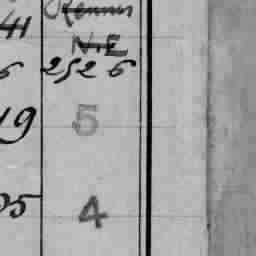 41
N.E
6 252 6
19 5
05 4